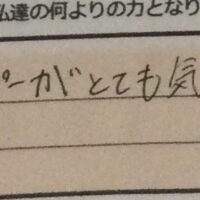 私達の何よりの力となり
ーがとても気